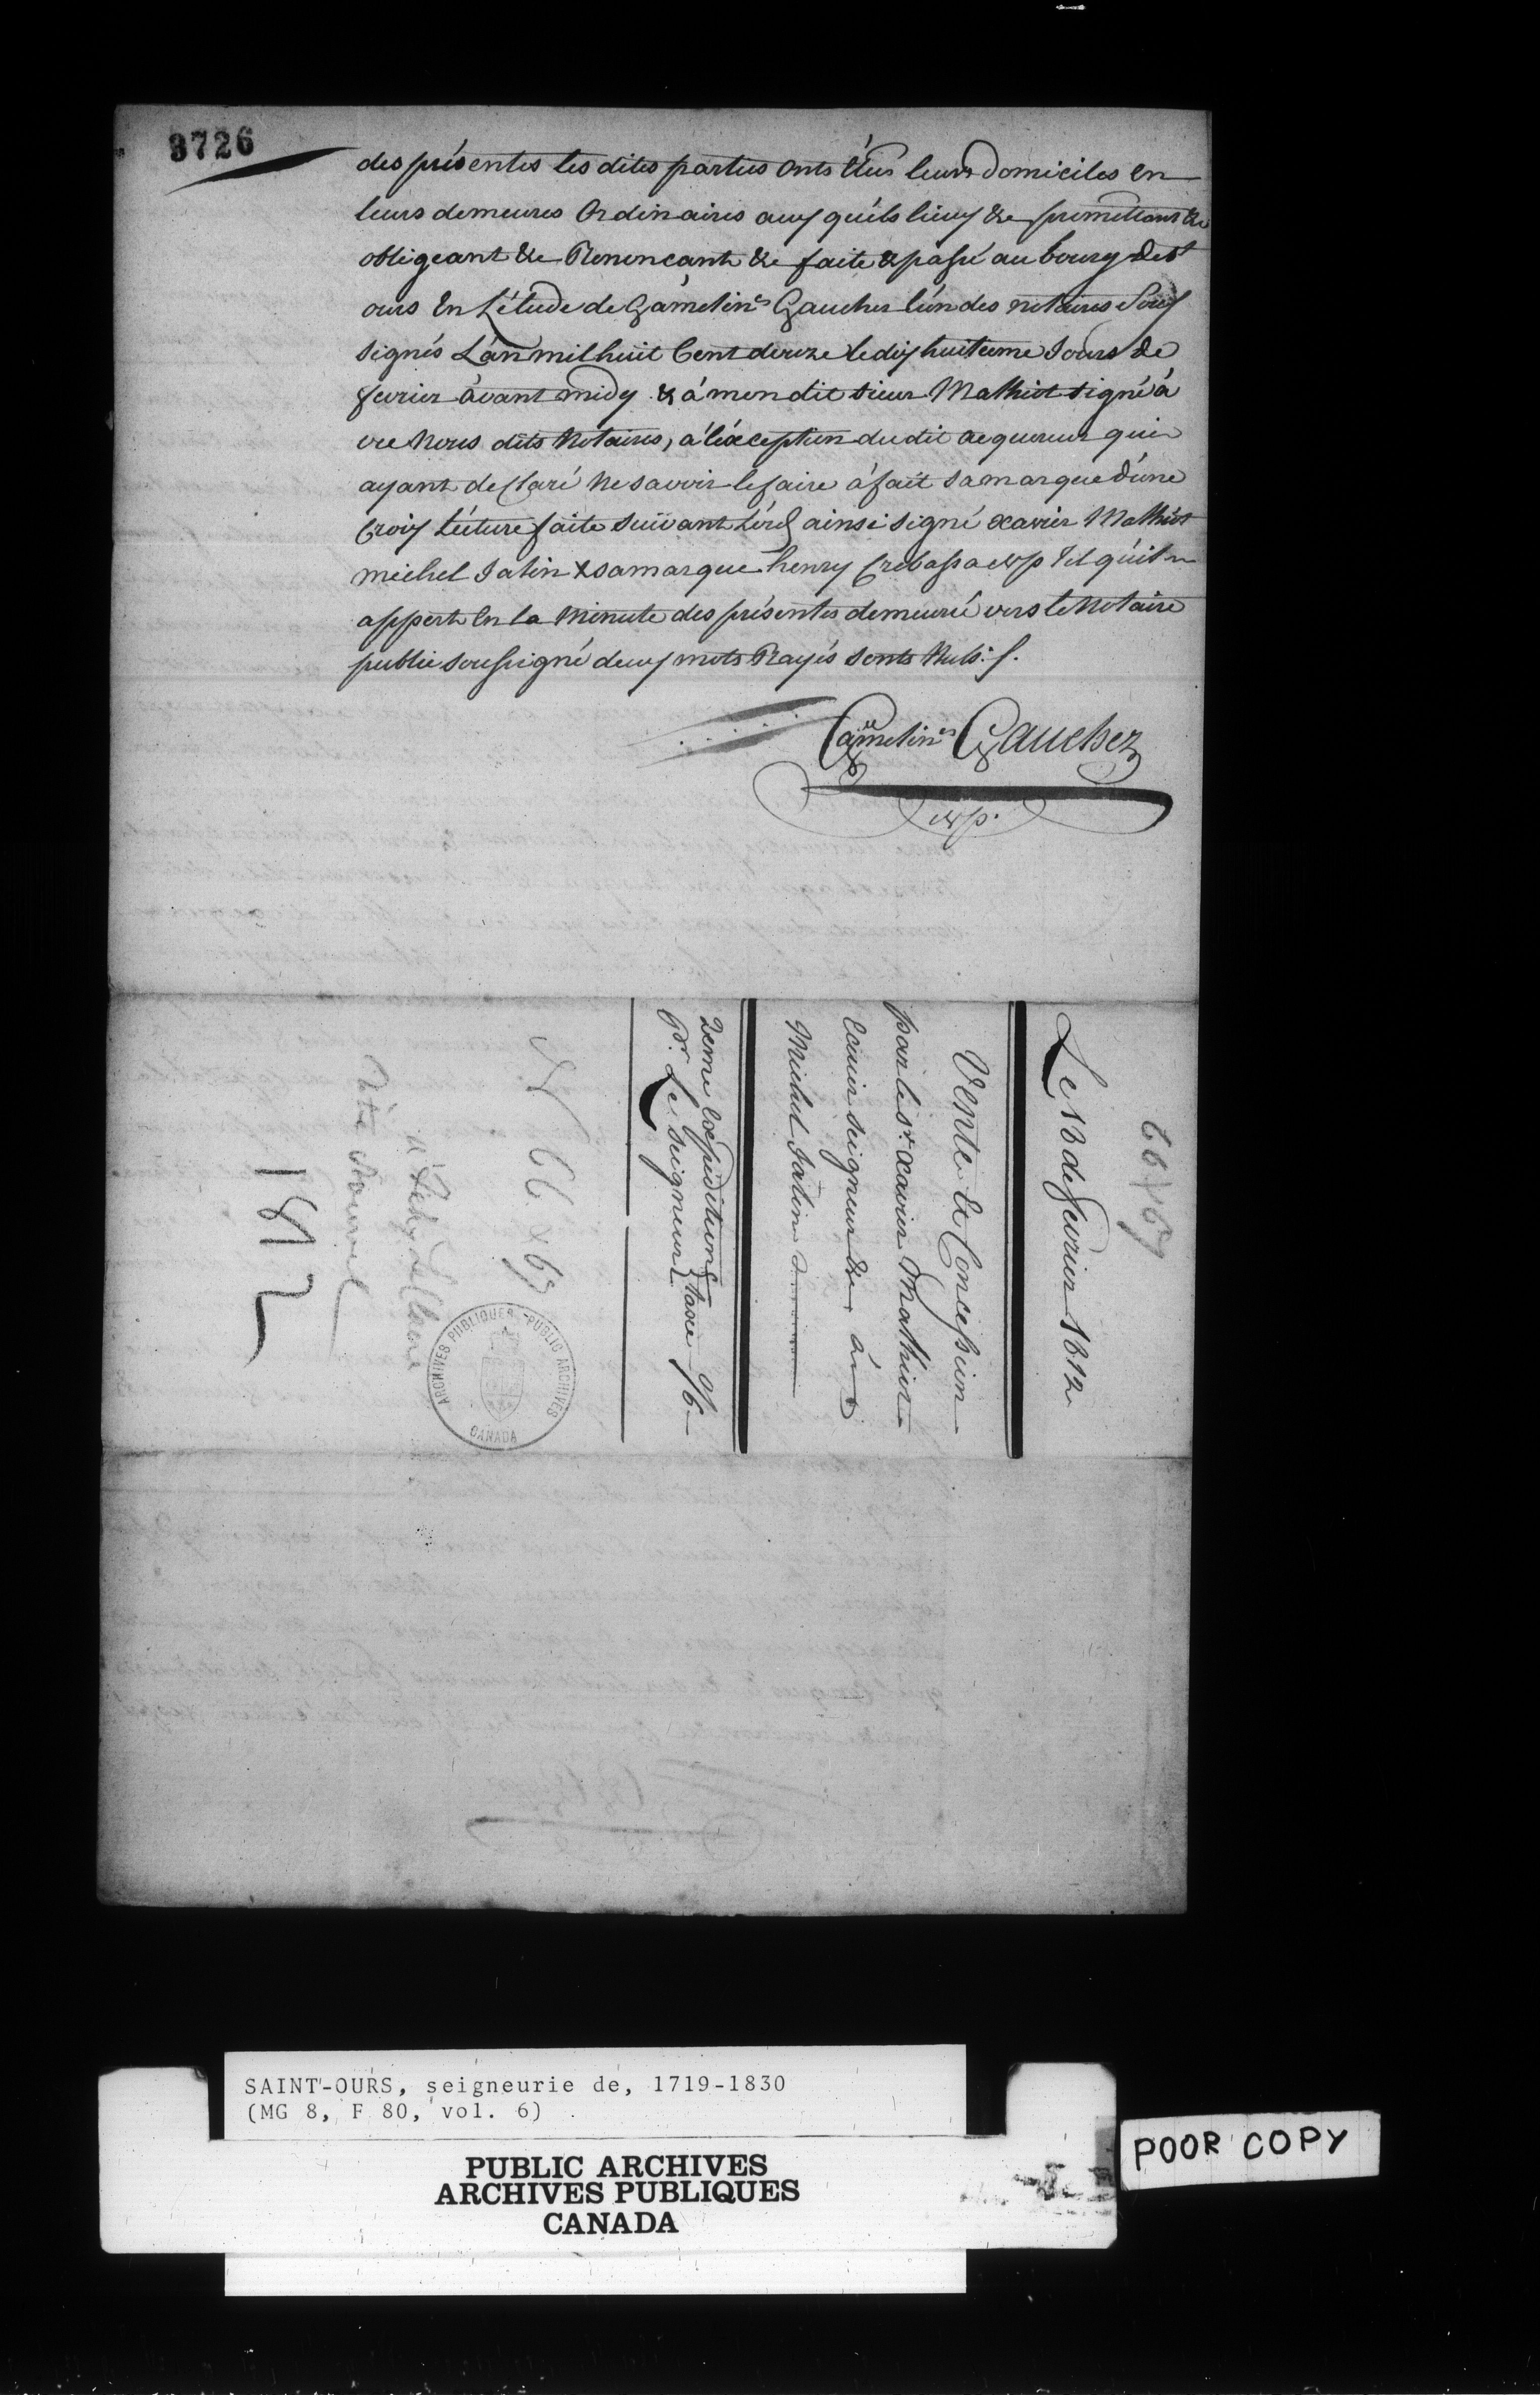 3726
des présentes les dites parties onts élus leurs domiciles en
leurs demeures Ordinaires aux quéls lieux &c promettant &c
obligeant &c Renoncant &c faite & passé au bourg de st
ours En L'étude de Gamelin Gaucher l'un des notaires Sous
signés L'an mil huit Cent douze le dix huitieme Jours de
fevrier avant midy & à mon dit sieur Mathiot signé à
vec Nous dits Notaires, a l'éxception du dit acquereur qui
ayant declaré Ne savoir le faire à fait sa marque d'une
Croix Lécture faite suivant L'ord ainsi signé xavier Mathiot
michel Jalin x sa marque henry Crebassa np Tel qu'il
appert En la Minute des présentes demeuré vers le Notaire
public soussigné deux mots Rayés sonts Nuls.
Gamelin Gaucher
np.
66 & 67
Le 18 de fevrier 1812
Vente Et Concession
par le sr. xavier Mathiot
Ecuier seigneur &c à
Michel Jalin
2eme Expedition taxée 9/6
Pr. Le seigneur
N 66 & 67
192
ARCHIVES PUBLIQUES - PUBLIC ARCHIVES
CANADA
SAINT-OURS, seigneurie de, 1719-1830
(MG 8, F 80, vol. 6)
PUBLIC ARCHIVES
ARCHIVES PUBLIQUES
CANADA
POOR COPY